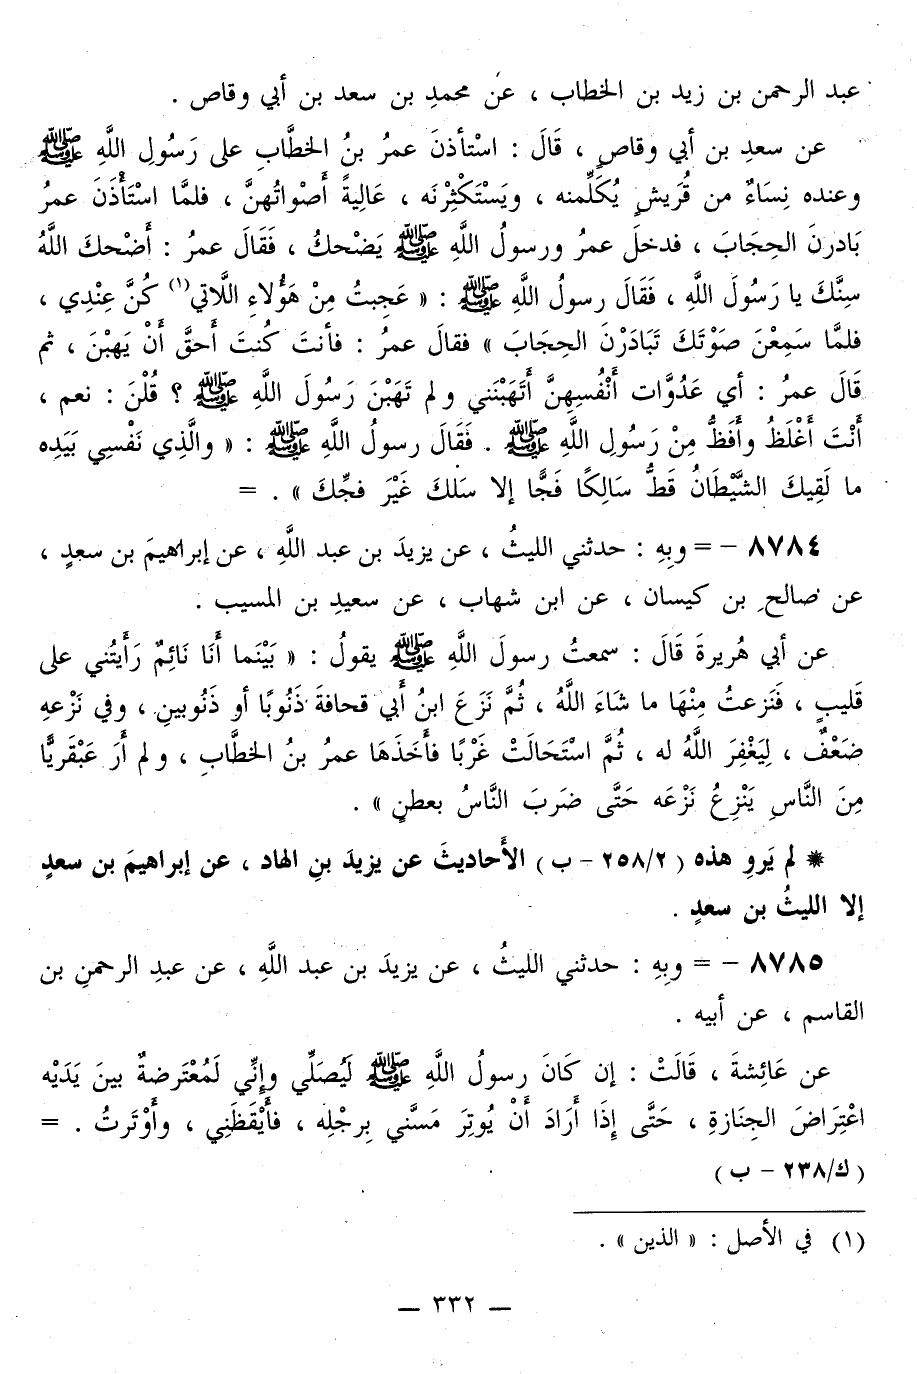 عبد الرحمن بن زيد بن الخطاب ، عن محمدِ بن سعد بن أبي وقاص .
عن سعدِ بن أبي وقاصٍ ، قَالَ : اسْتأذنَ عمرُ بنُ الخطَّابِ على رَسُولِ اللَّهِ ﷺ
وعنده نِسَاءٌ من قُريشٍ يُكَلِّمنه ، ويَسْتَكْثِرْنَه ، عَاليةً أَصْواتُهنَّ ، فلمَّا اسْتَأْذَنَ عمرُ
بَادرنَ الحِجَابَ ، فدخلَ عمرُ ورسولُ اللَّهِ ﷺ يَضْحكُ ، فَقَالَ عمرُ : أَضْحكَ اللَّهُ
سِنَّكَ يا رَسُولَ اللَّهِ ، فَقَالَ رسولُ اللَّهِ ﷺ : « عَجِبتُ مِنْ هَؤُلاءِ اللَّاتي(١) كُنَّ عِنْدِي ،
فلمَّا سَمِعْنَ صَوْتَكَ تَبَادَرْنَ الحِجَابَ » فقالَ عمرُ : فأنتَ كُنتَ أَحقَّ أَنْ يَهبْنَ ، ثم
قَالَ عمرُ : أي عَدُوَّات أَنْفُسِهِنَّ أَتَهَبْنَني ولم تَهَبْنَ رَسُولَ اللَّهِ ﷺ ؟ قُلْنَ : نعم ،
أَنْتَ أَغْلَظُ وأَفَظُّ مِنْ رَسُولِ اللَّهِ ﷺ . فَقَالَ رسولُ اللَّهِ ﷺ : « والَّذِي نَفْسِي بيَدِه
ما لَقِيكَ الشَّيْطَانُ قطُّ سَالِكًا فَجًّا إلا سَلكَ غَيْرَ فجِّكَ » . =
٨٧٨٤ – = وبِهِ : حدثني الليثُ ، عن يزيدَ بن عبد اللَّهِ ، عن إبراهيمَ بن سعدٍ ،
عن صالحِ بن كيسان ، عن ابن شهاب ، عن سعيدِ بن المسيب .
عن أبي هُريرةَ قَالَ : سمعتُ رسولَ اللَّهِ ﷺ يقولُ : « بَيْنَما أَنَا نَائِمٌ رَأَيتُني على
قَليبٍ ، فَنَزعتُ مِنْهَا ما شَاءَ اللَّهُ ، ثُمَّ نَزَعَ ابنُ أَبي قحافةَ ذَنُوبًا أو ذَنُوبينِ ، وفي نَزْعهِ
ضَعْفٌ ، لِيَغْفِرَ اللَّهُ له ، ثُمَّ اسْتَحَالَتْ غَرْبًا فأَخَذَهَا عمرُ بنُ الخطَّابِ ، ولم أَرَ عَبْقَريًّا
مِنَ النَّاسِ يَنْزِعُ نَزْعَه حَتَّى ضَربَ النَّاسُ بعطنٍ » .
* لم يَروِ هذه ( ٢٥٨/٢ – ب ) الأَحاديثَ عن يزيدَ بنِ الهاد ، عن إبراهيمَ بن سعدٍ
إلا الليثُ بن سعدٍ .
٨٧٨٥ – = وبِهِ : حدثني الليثُ ، عن يزيدَ بن عبد اللَّهِ ، عن عبدِ الرحمنِ بن
القاسم ، عن أبيه .
عن عَائِشةَ ، قَالَتْ : إن كَانَ رسولُ اللَّهِ ﷺ لَيُصَلِّي وإِنِّي لَمُعْتَرضةٌ بينَ يَدَيْه
اعْتِرَاضَ الجِنَازةِ ، حَتَّى إِذَا أَرَادَ أَنْ يُوتِرَ مَسَّني بِرجْلِه ، فأَيْقَظَنِي ، وأَوْتَرتُ . =
(ك/٢٣٨ – ب)
(١) في الأصل : « الذين » .
— ٣٣٢ —